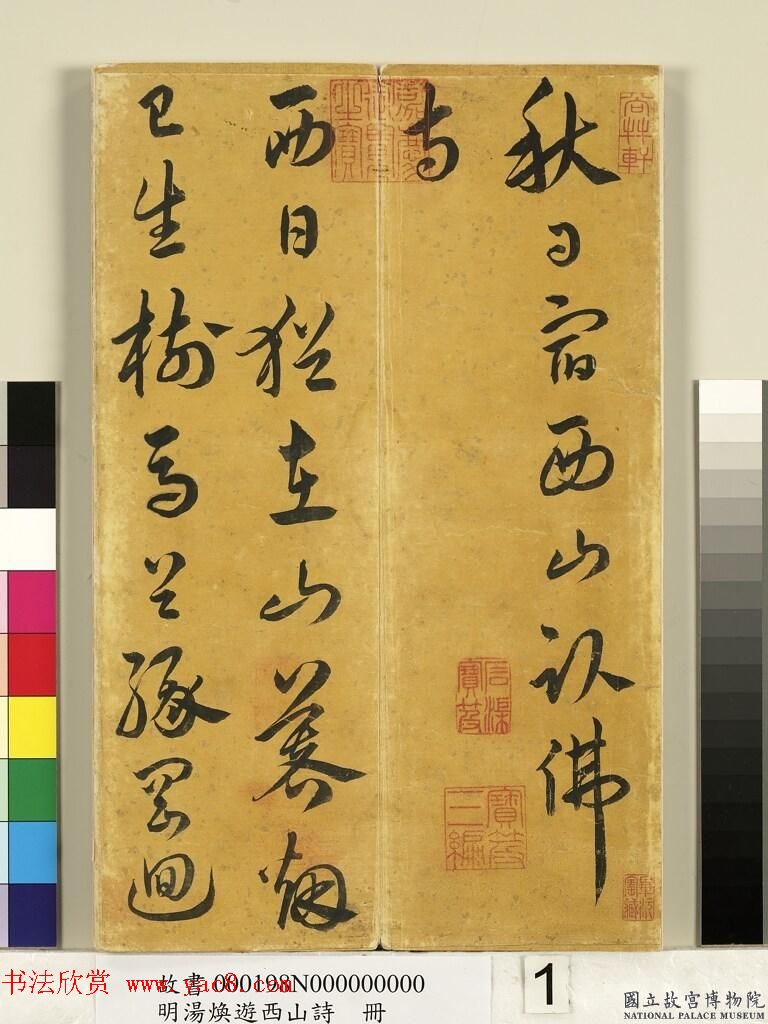 秋日宿西山卧佛
寺
西日猶在山暮烟
已生樹馬首緣岡迴
嘉慶御覽之寶
石渠寶笈
寶笈三編
书法欣赏 www.yac8.com
故書 000198N000000000
明湯煥遊西山詩 冊
1
國立故宮博物院
NATIONAL PALACE MUSEUM